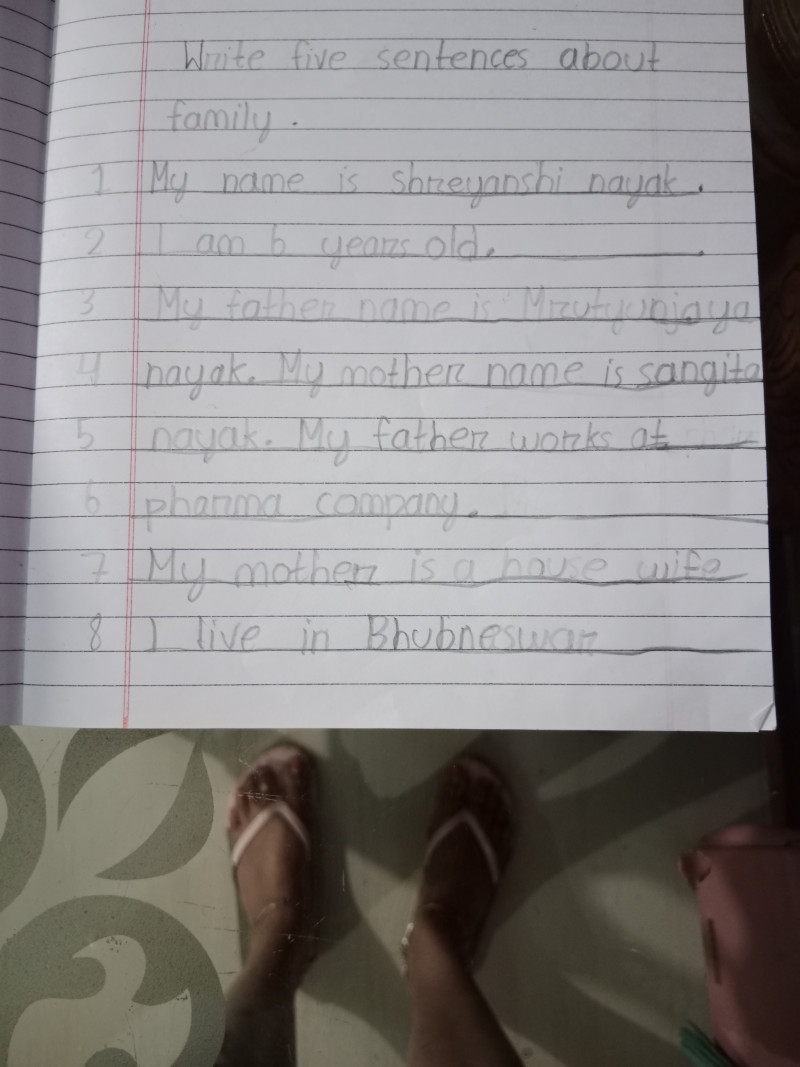 Write five sentences about
family.
1 My name is shreyanshi nayak.
2 I am 6 years old. .
3 My father name is Mrutyunjaya
4 nayak. My mother name is sangita
5 nayak. My father works at
6 pharma company.
7 My mother is a house wife
8 I live in Bhubneswar